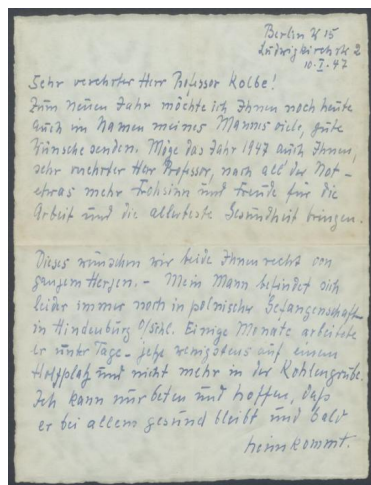 Berlin W 15
Ludwigkirchstr 2
10.I.47
Sehr verehrter Herr Professor Kolbe!
Zum neuen Jahr möchte ich Ihnen noch heute
auch im Namen meines Mannes viele, gute
Wünsche senden. Möge das Jahr 1947 auch Ihnen,
sehr verehrter Herr Professor, nach all' der Not -
etwas mehr Frohsinn und Freude für die
Arbeit und die allerbeste Gesundheit bringen.
Dieses wünschen wir beide Ihnen recht von
ganzem Herzen. - Mein Mann befindet sich
leider immer noch in polnischer Gefangenschaft
in Hindenburg O/Schl. Einige Monate arbeitete
er unter Tage - jetzt wenigstens auf einem
Holzplatz und nicht mehr in der Kohlengrube.
Ich kann nur beten und hoffen, daß
er bei allem gesund bleibt und bald
heimkommt.